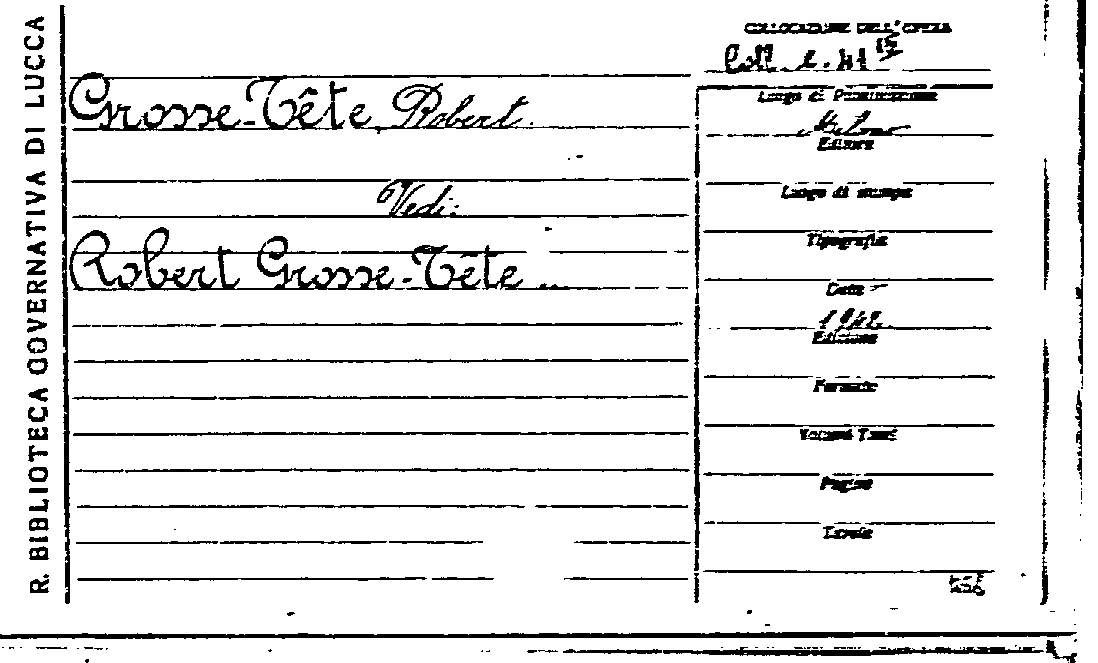 R. BIBLIOTECA GOVERNATIVA DI LUCCA
Grosse-Tête, Robert.
Vedi:
Robert Grosse-Tête ...
COLLOCAZIONE DELL'OPERA
Coll. e. 41
Luogo di Pubblicazione
Milano
Editore
Luogo di stampa
Tipografia
Data
1942.
Edizione
Formato
Volumi Tomi
Pagine
Tavole